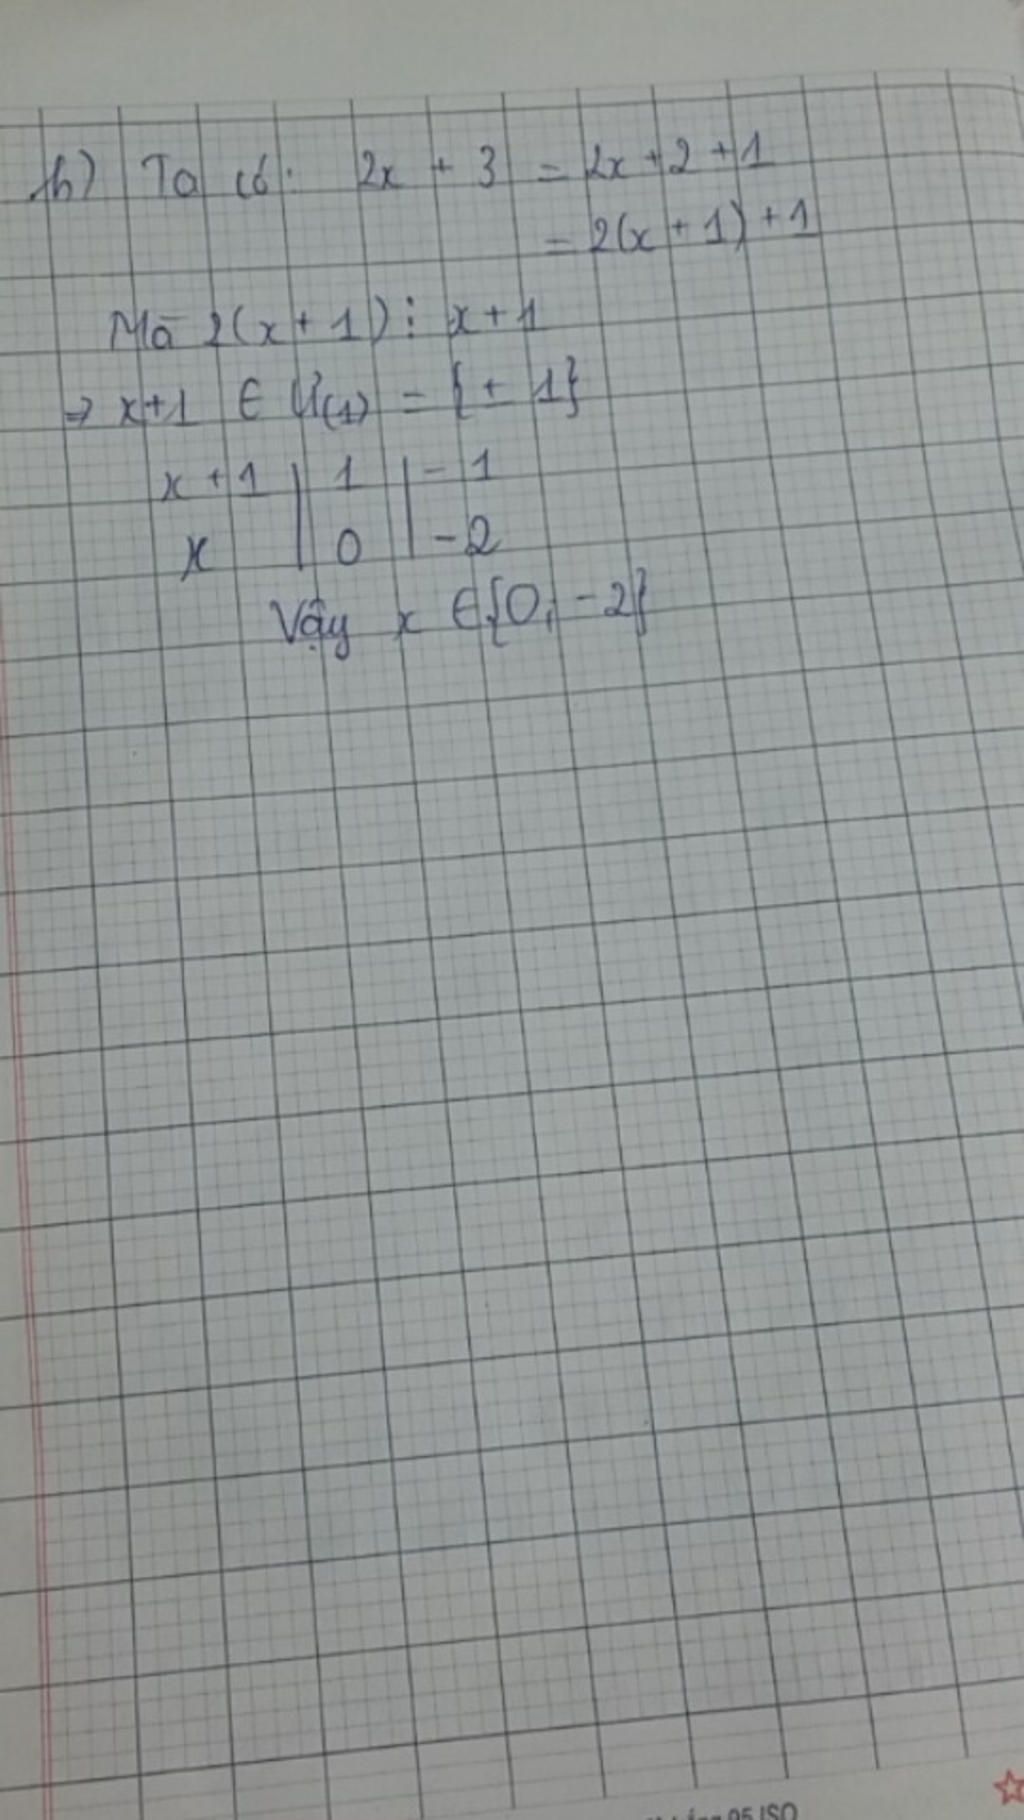 h) Ta có: 2x + 3 = 2x + 2 + 1
= 2(x + 1) + 1
Mà 2(x + 1) ⋮ x + 1
⇒ x+1 ∈ Ư(1) = {± 1}
x + 1 | 1 | - 1
x | 0 | - 2
Vậy x ∈ {0; - 2}
05 ISO